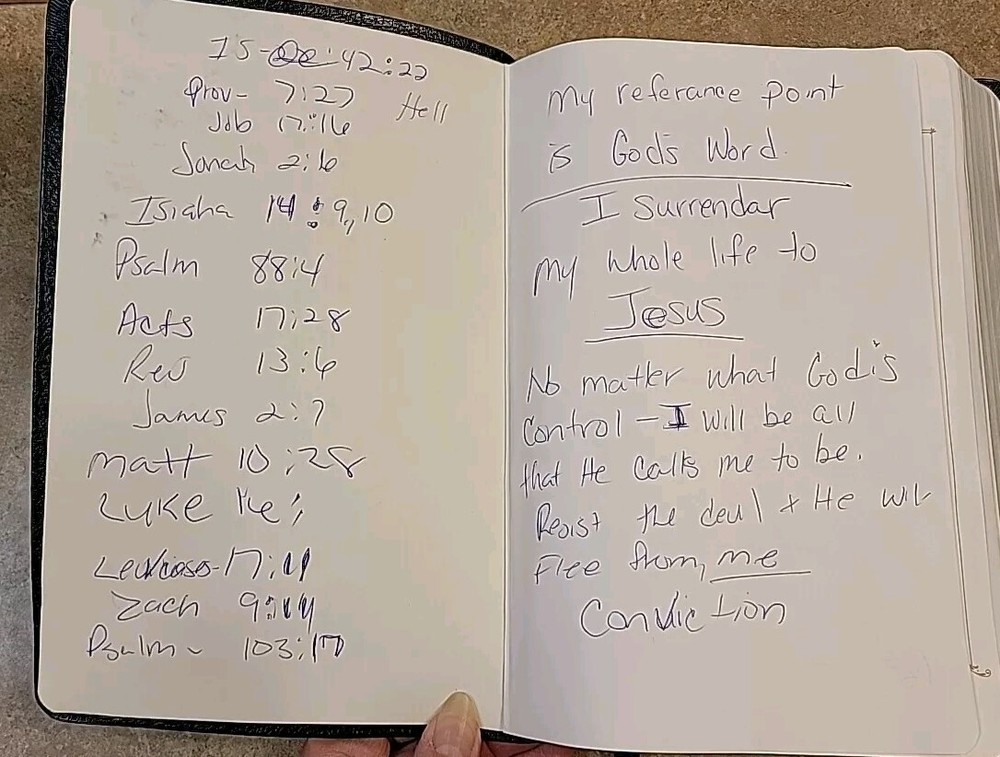 IS - 42:22
Prov- 7:27
Hell
Job 17:16
Jonah 2:6
Isiaha 14:9,10
Psalm 88:4
Acts 17:28
Rev 13:6
James 2:7
Matt 10:28
Luke 16:
17:11
Zach 9:11
Psalm - 103:17
My referance point
is God's Word.
I Surrendar
my whole life to
Jesus
No matter what God is
control - I will be all
that He calls me to be.
Resist the devil + He will
Flee from, me
Conviction